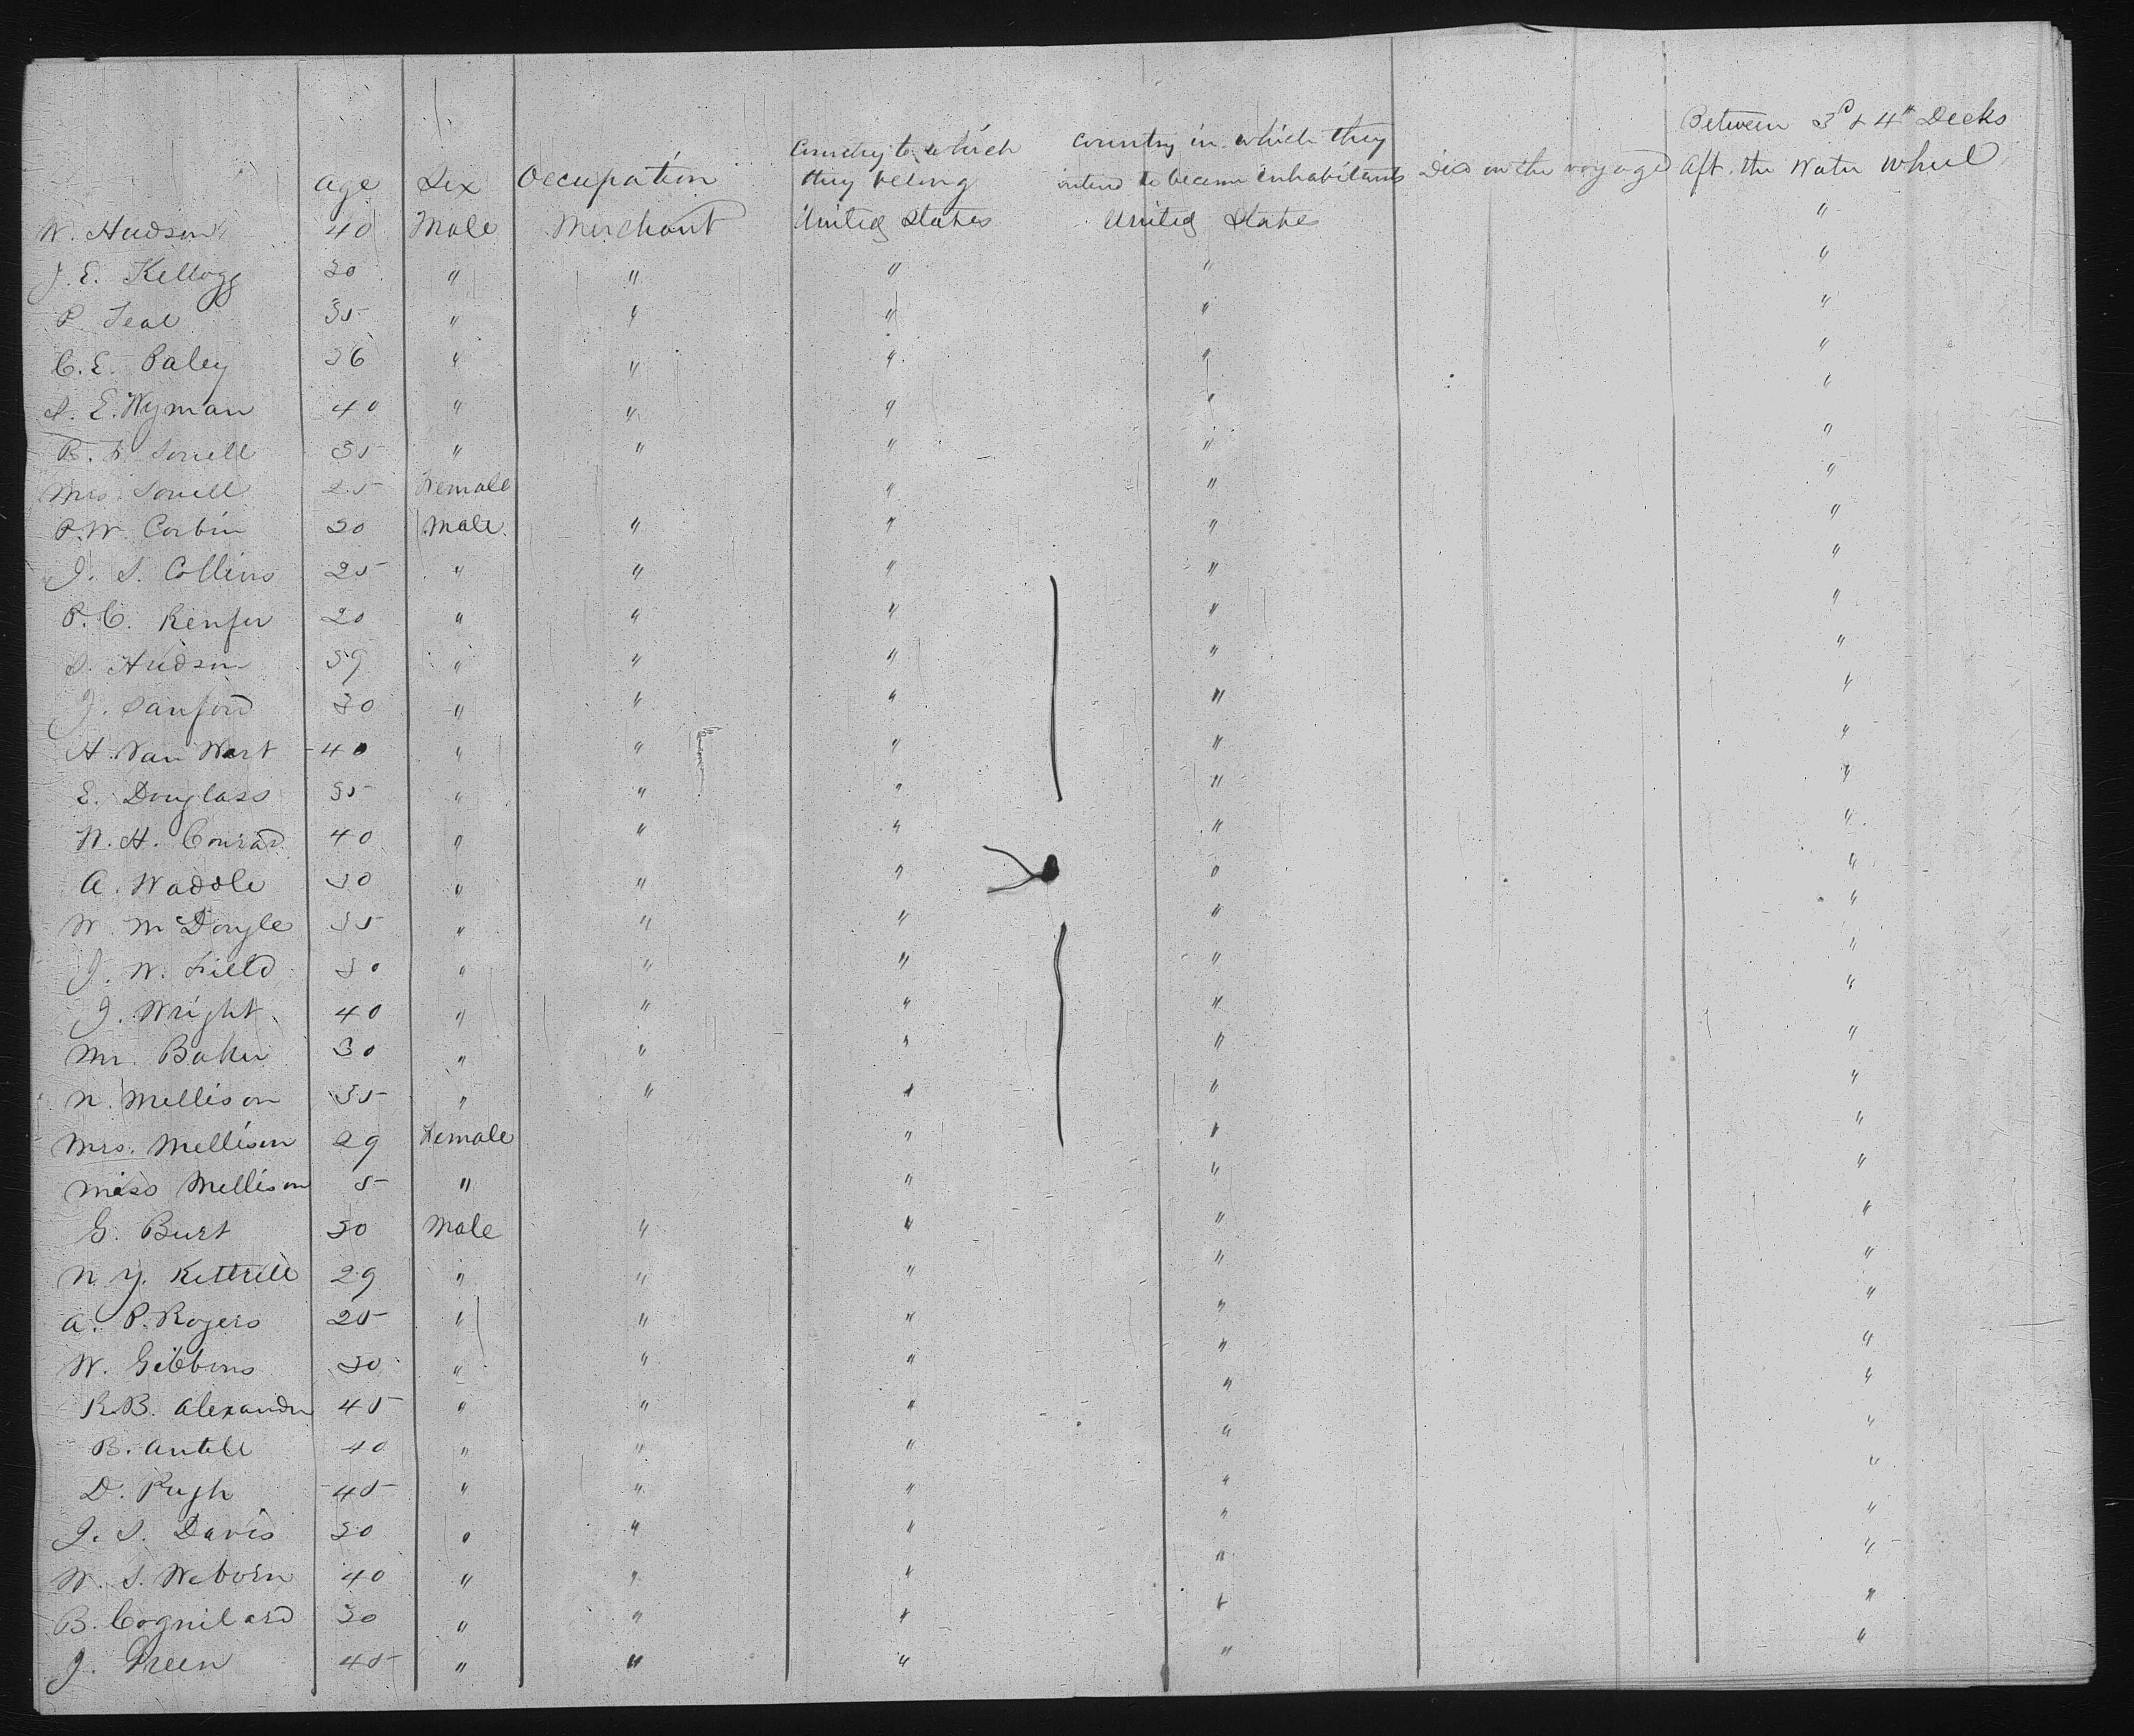 Between 3d & 4th Decks
Age Sex Occupation Country to which they belong Country in which they intend to become inhabitants Died on the voyage Aft. the Water Wheel
W. Hudson 40 Male Merchant United States United State "
J. E. Kellogg 30 " " " " "
P. Teal 35 " " " " "
C. E. Paley 36 " " " " "
S. E. Wyman 40 " " " " "
R. 35 " " " " "
Mrs. 25 Female " " "
P. W. Corbin 30 Male " " " "
J. S. Collins 25 " " " " "
P. C. Renfer 20 " " " " "
S. Hudson 39 " " " " "
J. Sanford 30 " " " " "
H. Van Wart 40 " " " " "
E. Douglass 35 " " " " "
N. H. Conrad 40 " " " " "
A. Waddle 30 " " " " "
W. M 35 " " " " "
J. W. Field 30 " " " " "
J. Wright 40 " " " " "
Mr. Baker 30 " " " " "
N. Mellison 35 " " " " "
Mrs. Mellison 29 Female " " "
Miss Mellison 5 " " " "
G. Burt 30 Male " " " "
N. Y. Kittrell 29 " " " " "
A. P. Rogers 25 " " " " "
W. Gibbons 30 " " " " "
R. B. Alexander 45 " " " " "
B. Antill 40 " " " " "
D. Pugh 45 " " " " "
J. S. Davis 30 " " " " "
W. S. Weborn 40 " " " " "
B. Cognilard 30 " " " " "
J. Green 45 " " " " "